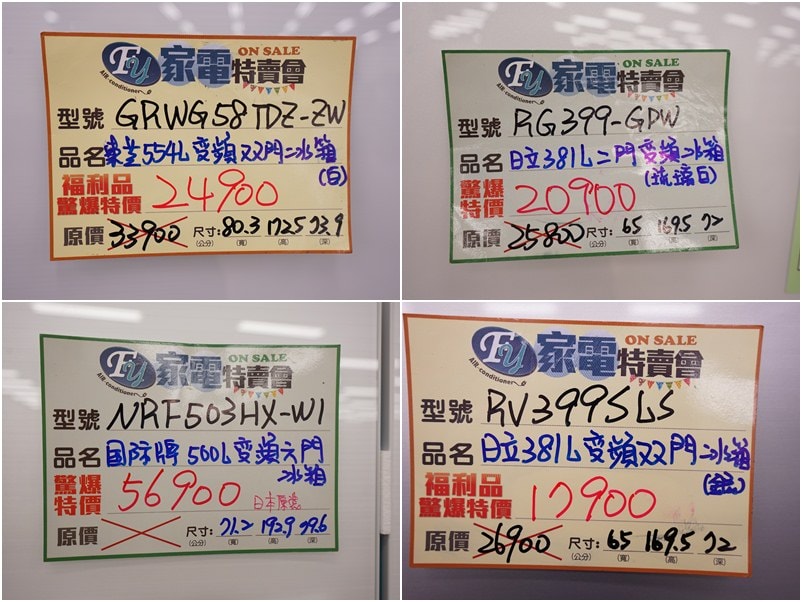 FY 家電特賣會 ON SALE
AIR-conditioner
型號 GRWG58TDZ-ZW
品名 東芝554L變頻双門冰箱
(白)
福利品
驚爆特價 24900
原價 33900 尺寸: 80.3 172.5 73.9
(公分) (寬) (高) (深)
FY 家電特賣會 ON SALE
AIR-conditioner
型號 RG399-GPW
品名 日立381L二門變頻冰箱
(琉璃白)
驚爆
特價 20900
原價 25800 尺寸: 65 169.5 72
(公分) (寬) (高) (深)
FY 家電特賣會 ON SALE
AIR-conditioner
型號 NRF503HX-W1
品名 国际牌500L變頻六門
冰箱
驚爆
特價 56900 日本原裝
原價 尺寸: 71.2 192.9 79.6
(公分) (寬) (高) (深)
FY 家電特賣會 ON SALE
AIR-conditioner
型號 RV399SLS
品名 日立381L變頻双門冰箱
福利品
驚爆特價 17900
原價 26900 尺寸: 65 169.5 72
(公分) (寬) (高) (深)